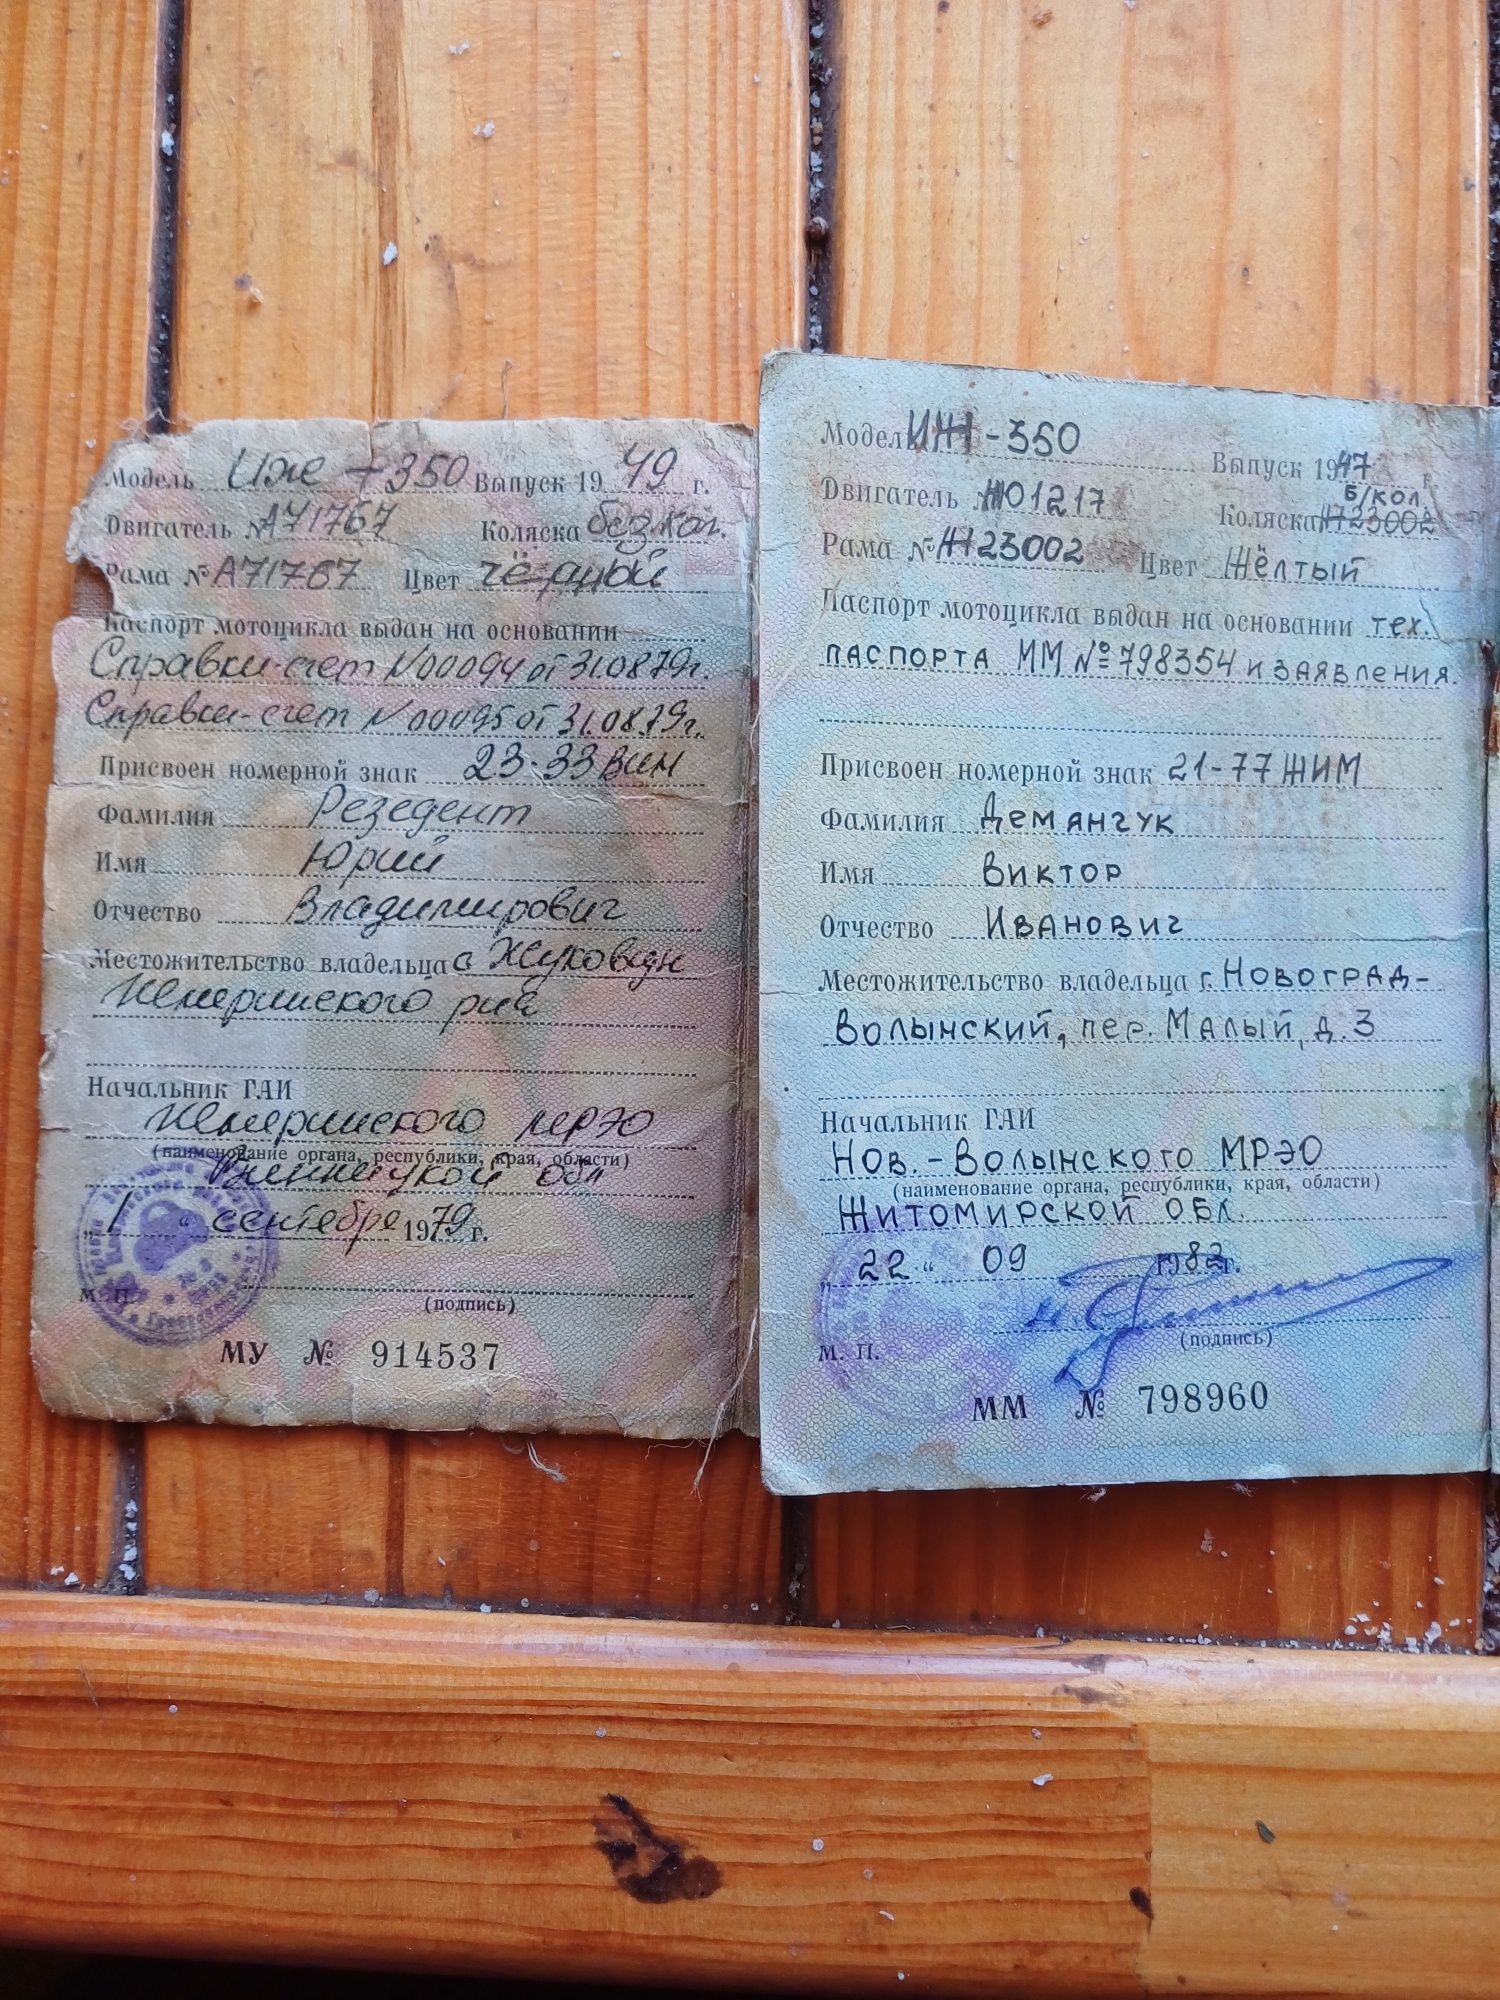 Модель Иж-350 Выпуск 1949 г.
Двигатель № А71767 Коляска без кол.
Рама № А71767 Цвет чёрный
Паспорт мотоцикла выдан на основании
Справки-счет N 00094 от 31.08.79г.
Справки-счет N 00095 от 31.08.79г.
Присвоен номерной знак 23-33 вин
Фамилия Резедент
Имя Юрий
Отчество Владимирович
Местожительство владельца с
Немеринского р-на
Начальник ГАИ
МРЭО
(наименование органа, республики, края, области)
Винницкой обл
„1“ сентября 1979 г.
М. П.
(подпись)
МУ № 914537
Модел ИЖ-350 Выпуск 1947 г.
Б/кол.
Двигатель № Ж01217 Коляска Ж23002
Рама № Ж23002 Цвет Жёлтый
Паспорт мотоцикла выдан на основании тех.
паспорта ММ № 798354 и заявления.
Присвоен номерной знак 21-77 ЖИМ
Фамилия Демянчук
Имя Виктор
Отчество Иванович
Местожительство владельца г. Новоград-
Волынский, пер. Малый, д. 3
Начальник ГАИ
Нов.-Волынского МРЭО
(наименование органа, республики, края, области)
Житомирской обл.
„22“ 09 1982г.
(подпись)
М. П.
ММ № 798960